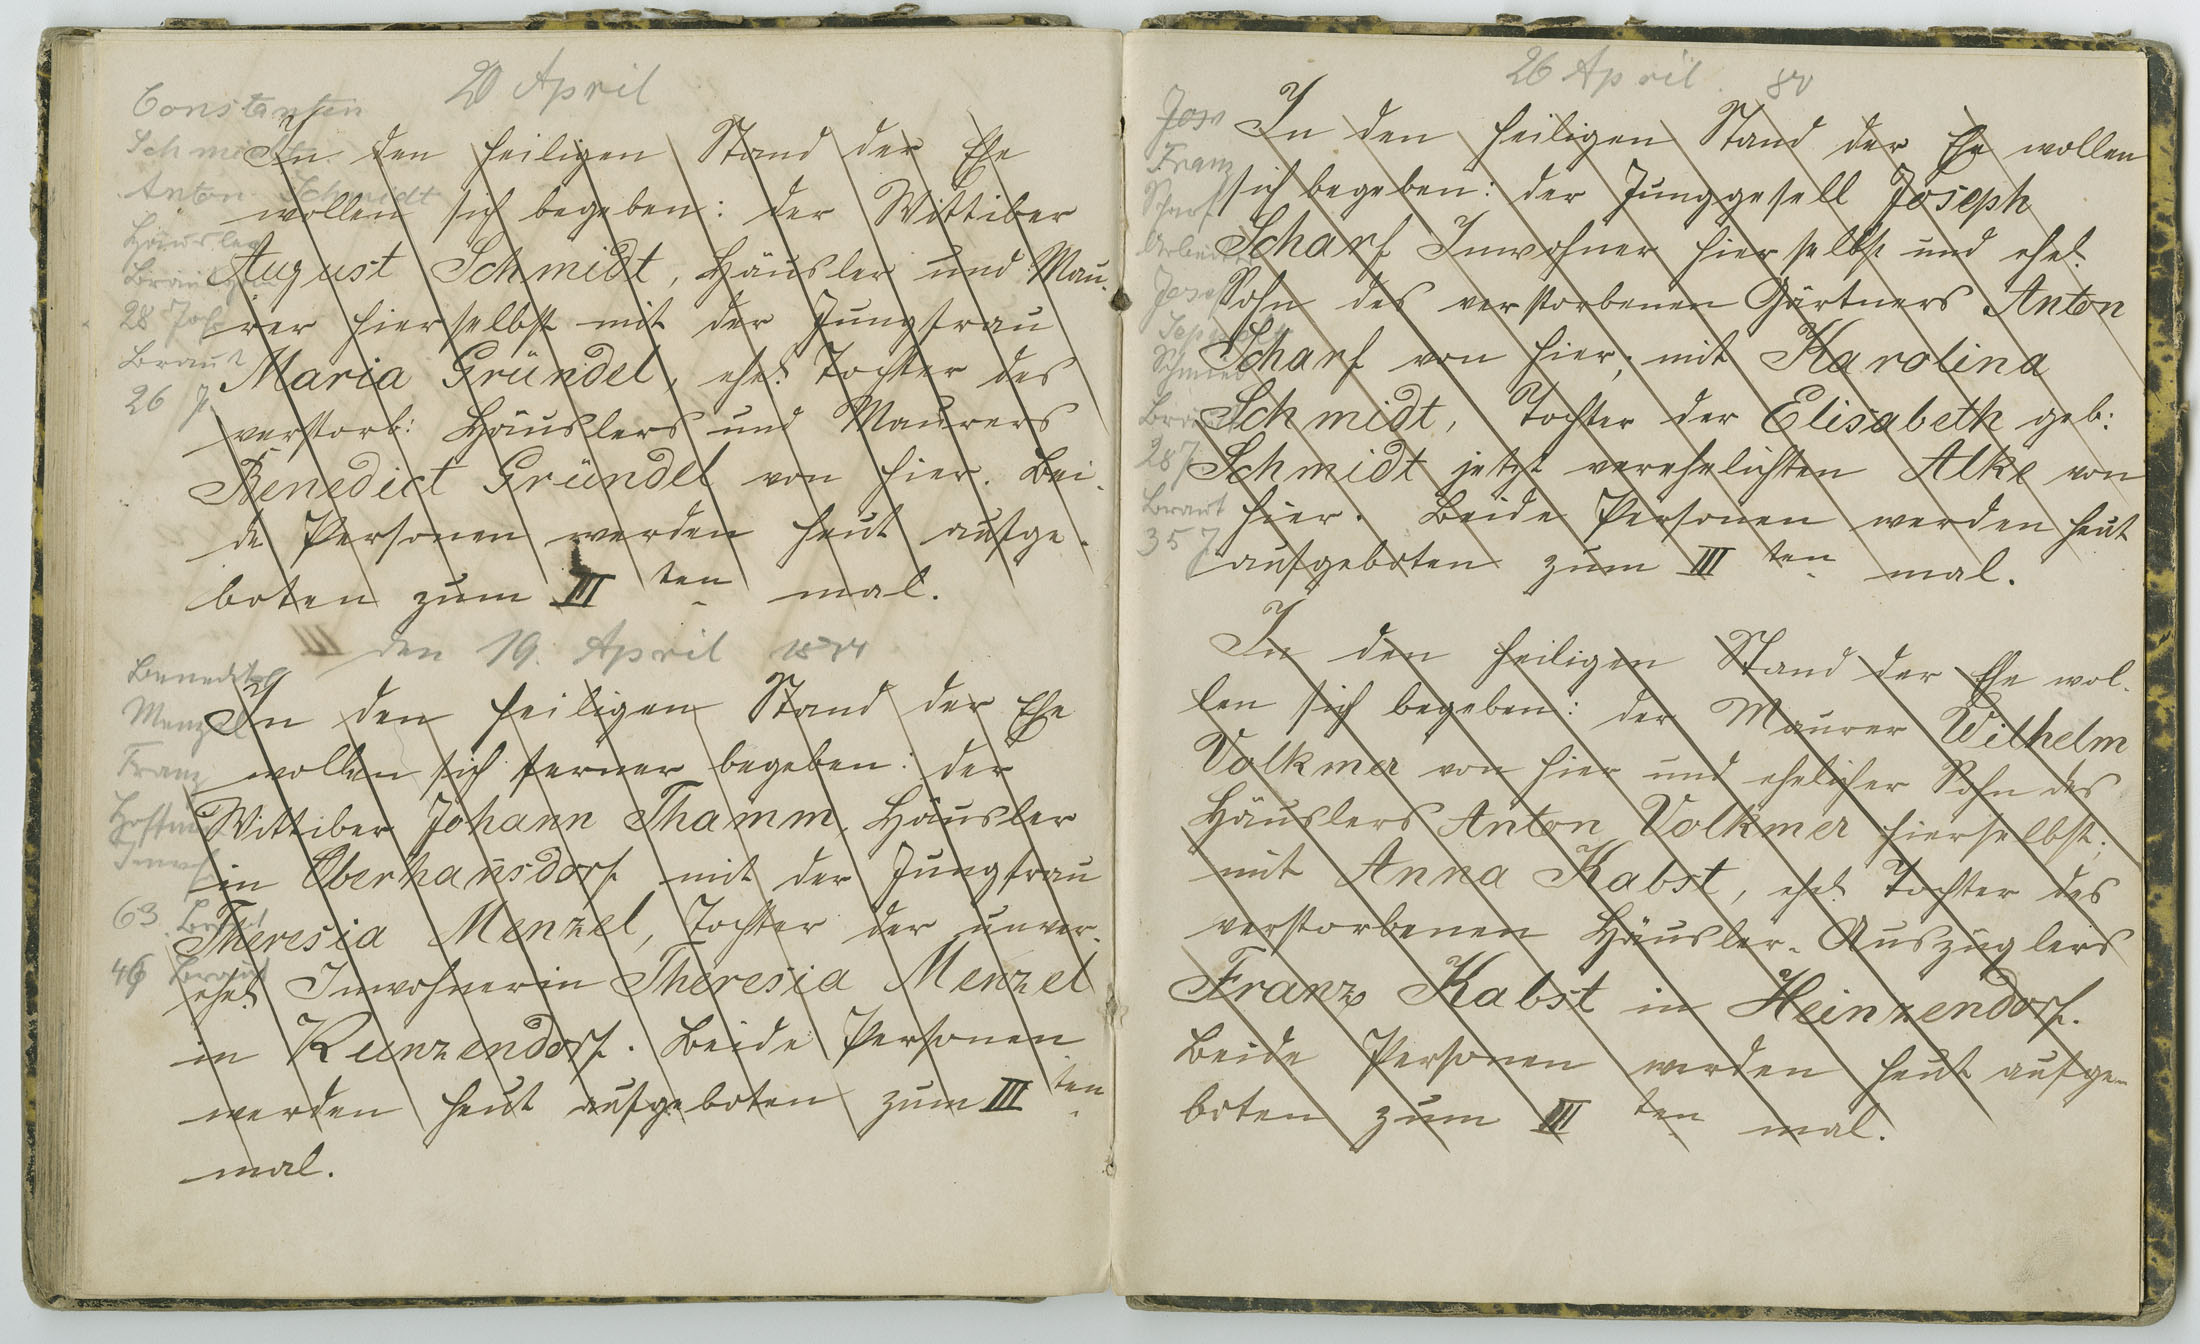 20 April
Constantin
Schmidt
Anton Schmidt
Häusler
Bräutigam
28 Jahr
Braut
26 J
In den heiligen Stand der Ehe
wollen sich begeben: der Wittiber
August Schmidt, Häusler und Mau-
rer hierselbst mit der Jungfrau
Maria Gründel, ehel. Tochter des
verstorb: Häuslers und Maurers
Benedict Gründel von hier. Bei-
de Personen werden heut aufge-
boten zum III ten mal.
den 19. April
Benedikt
Menzel
Franz
Hoffmann
Inwoh
63. Bräut
46 Braut
In den heiligen Stand der Ehe
wollen sich ferner begeben: der
Wittiber Johann Thamm, Häusler
in Oberhansdorf mit der Jungfrau
Theresia Menzel, Tochter der unver-
ehel. Inwohnerin Theresia Menzel
in Kunzendorf. Beide Personen
werden heut aufgeboten zum III ten
mal.
26 April 80
Jos
Franz
Scharf
Arbeiter
Josef
Schmied
Bräut
28 J
Braut
35 J
In den heiligen Stand der Ehe wollen
sich begeben: der Junggesell Joseph
Scharf Inwohner hierselbst und ehel.
Sohn des verstorbenen Gärtners Anton
Scharf von hier; mit Karolina
Schmidt, Tochter der Elisabeth geb:
Schmidt jetzt verehelichten Alke von
hier. Beide Personen werden heut
aufgeboten zum III ten mal.
In den heiligen Stand der Ehe wol-
len sich begeben: der Maurer Wilhelm
Volkmer von hier und ehelicher Sohn des
Häuslers Anton Volkmer hierselbst;
mit Anna Kabst, ehel. Tochter des
verstorbenen Häusler-Auszüglers
Franz Kabst in Heinzendorf.
Beide Personen werden heut aufge-
boten zum III ten mal.